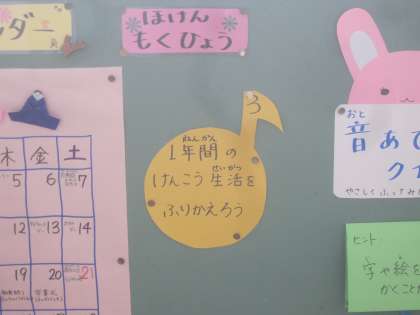 ダー
ほけん
もくひょう
3
ねんかん
1年間の
せいかつ
けんこう生活を
ふりかえろう
木 金 土
5 6 7
12 13 14
19 20 21
卒業式
おと
音あ
ク
やさしく
ヒント
字や絵を
かくこ